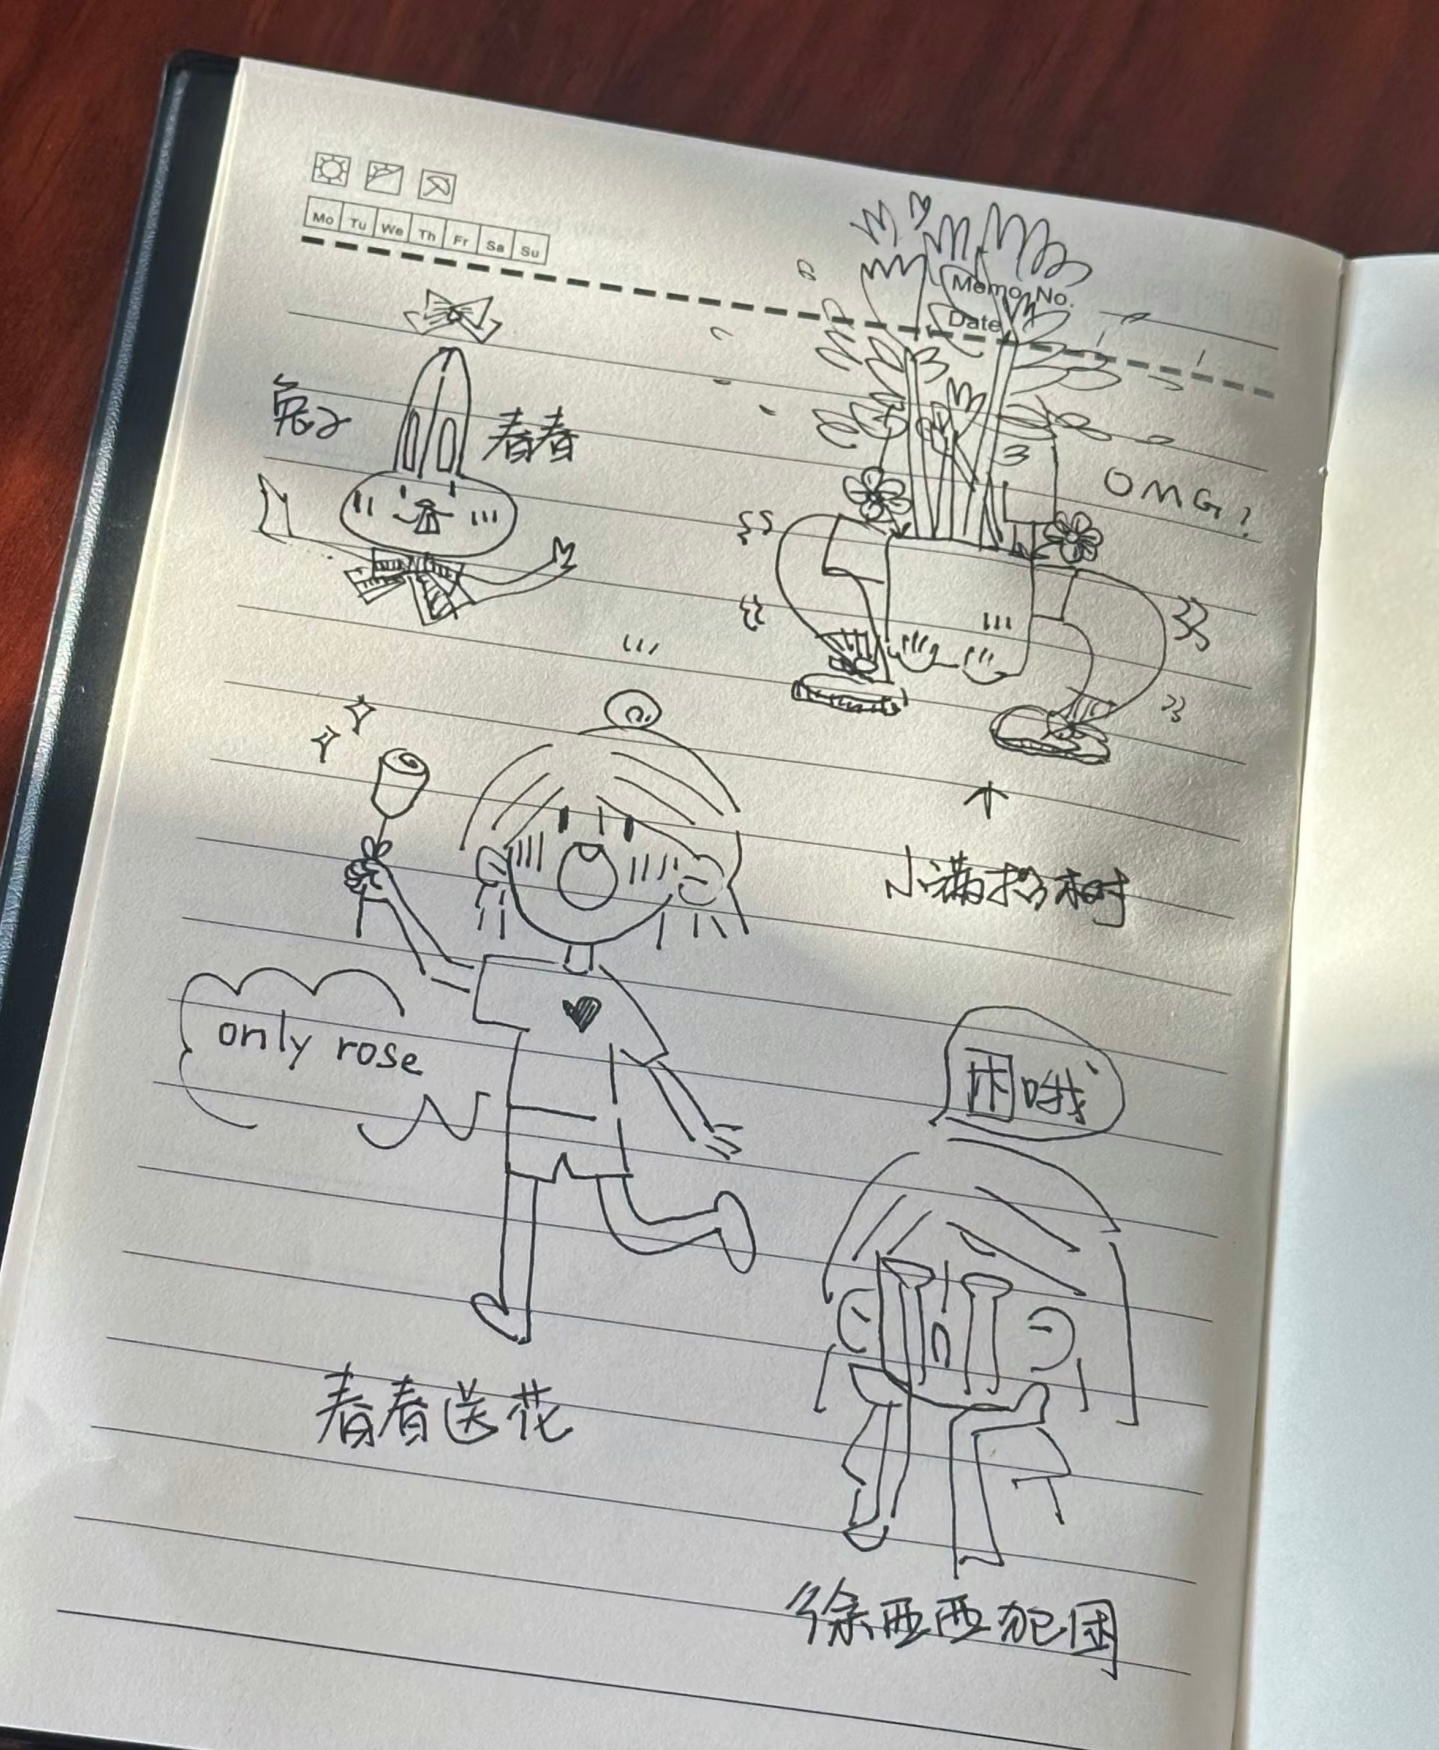 Mo Tu We Th Fr Sa Su
Memo No.
Date
兔子
春春
OMG!
小满扮树
only rose
困哦
春春送花
徐西西犯困